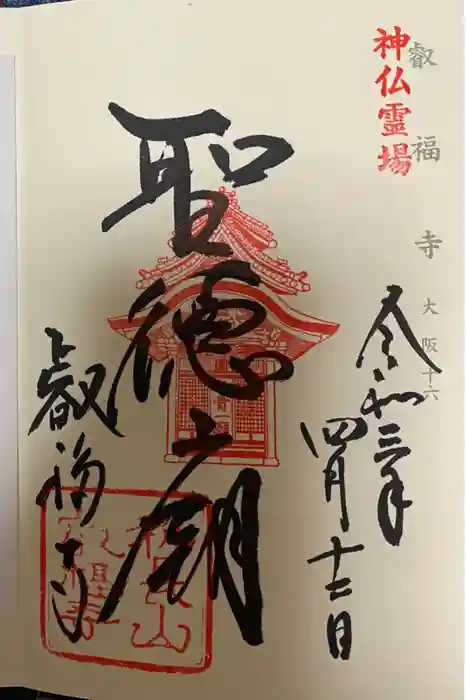 叡福寺 大阪十六
神仏霊場
令和三年
四月十二日
聖徳廟
叡福寺